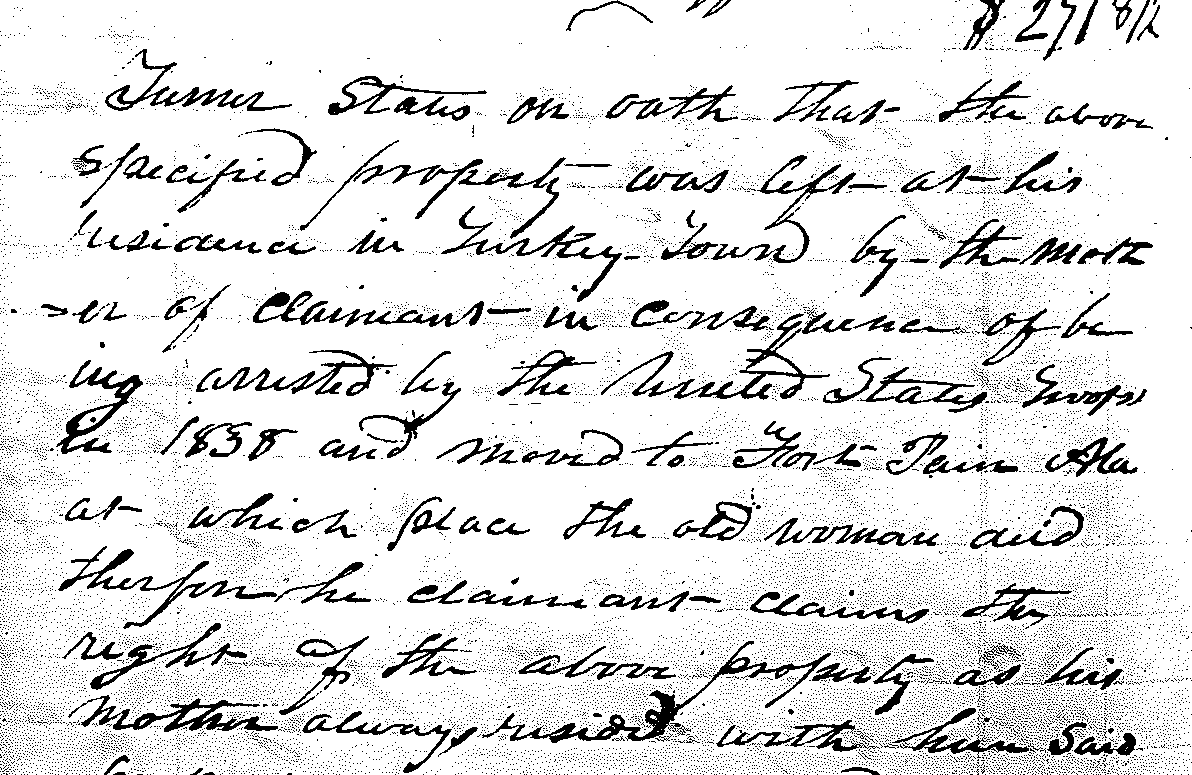 $ 271 8/2
Turner States on oath that the above
specified property was left at his
residence in Turkey Town by the moth
-er of claimant in consequence of be
ing arrested by the United States troops
in 1838 and moved to Fort Pain Ala
at which place the old woman died
therfore he claimant claims the
right of the above property as his
Mother always resided with him Said